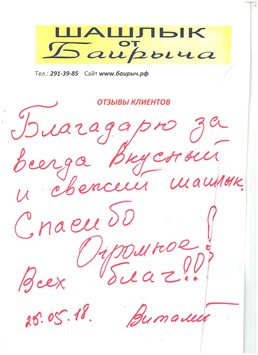 ШАШЛЫК
ОТ
Байрыча
Тел.: 291-39-85 Сайт www.баирыч.рф
ОТЗЫВЫ КЛИЕНТОВ
Благадарю за
всегда вкусный
и свежий шашлык.
Спасибо
Огромное!
Всех благ!!!
25.05.18. Виталий